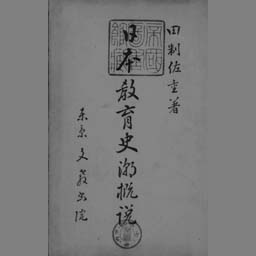 田制佐重著
日本教育史潮概説
東京 文教書院